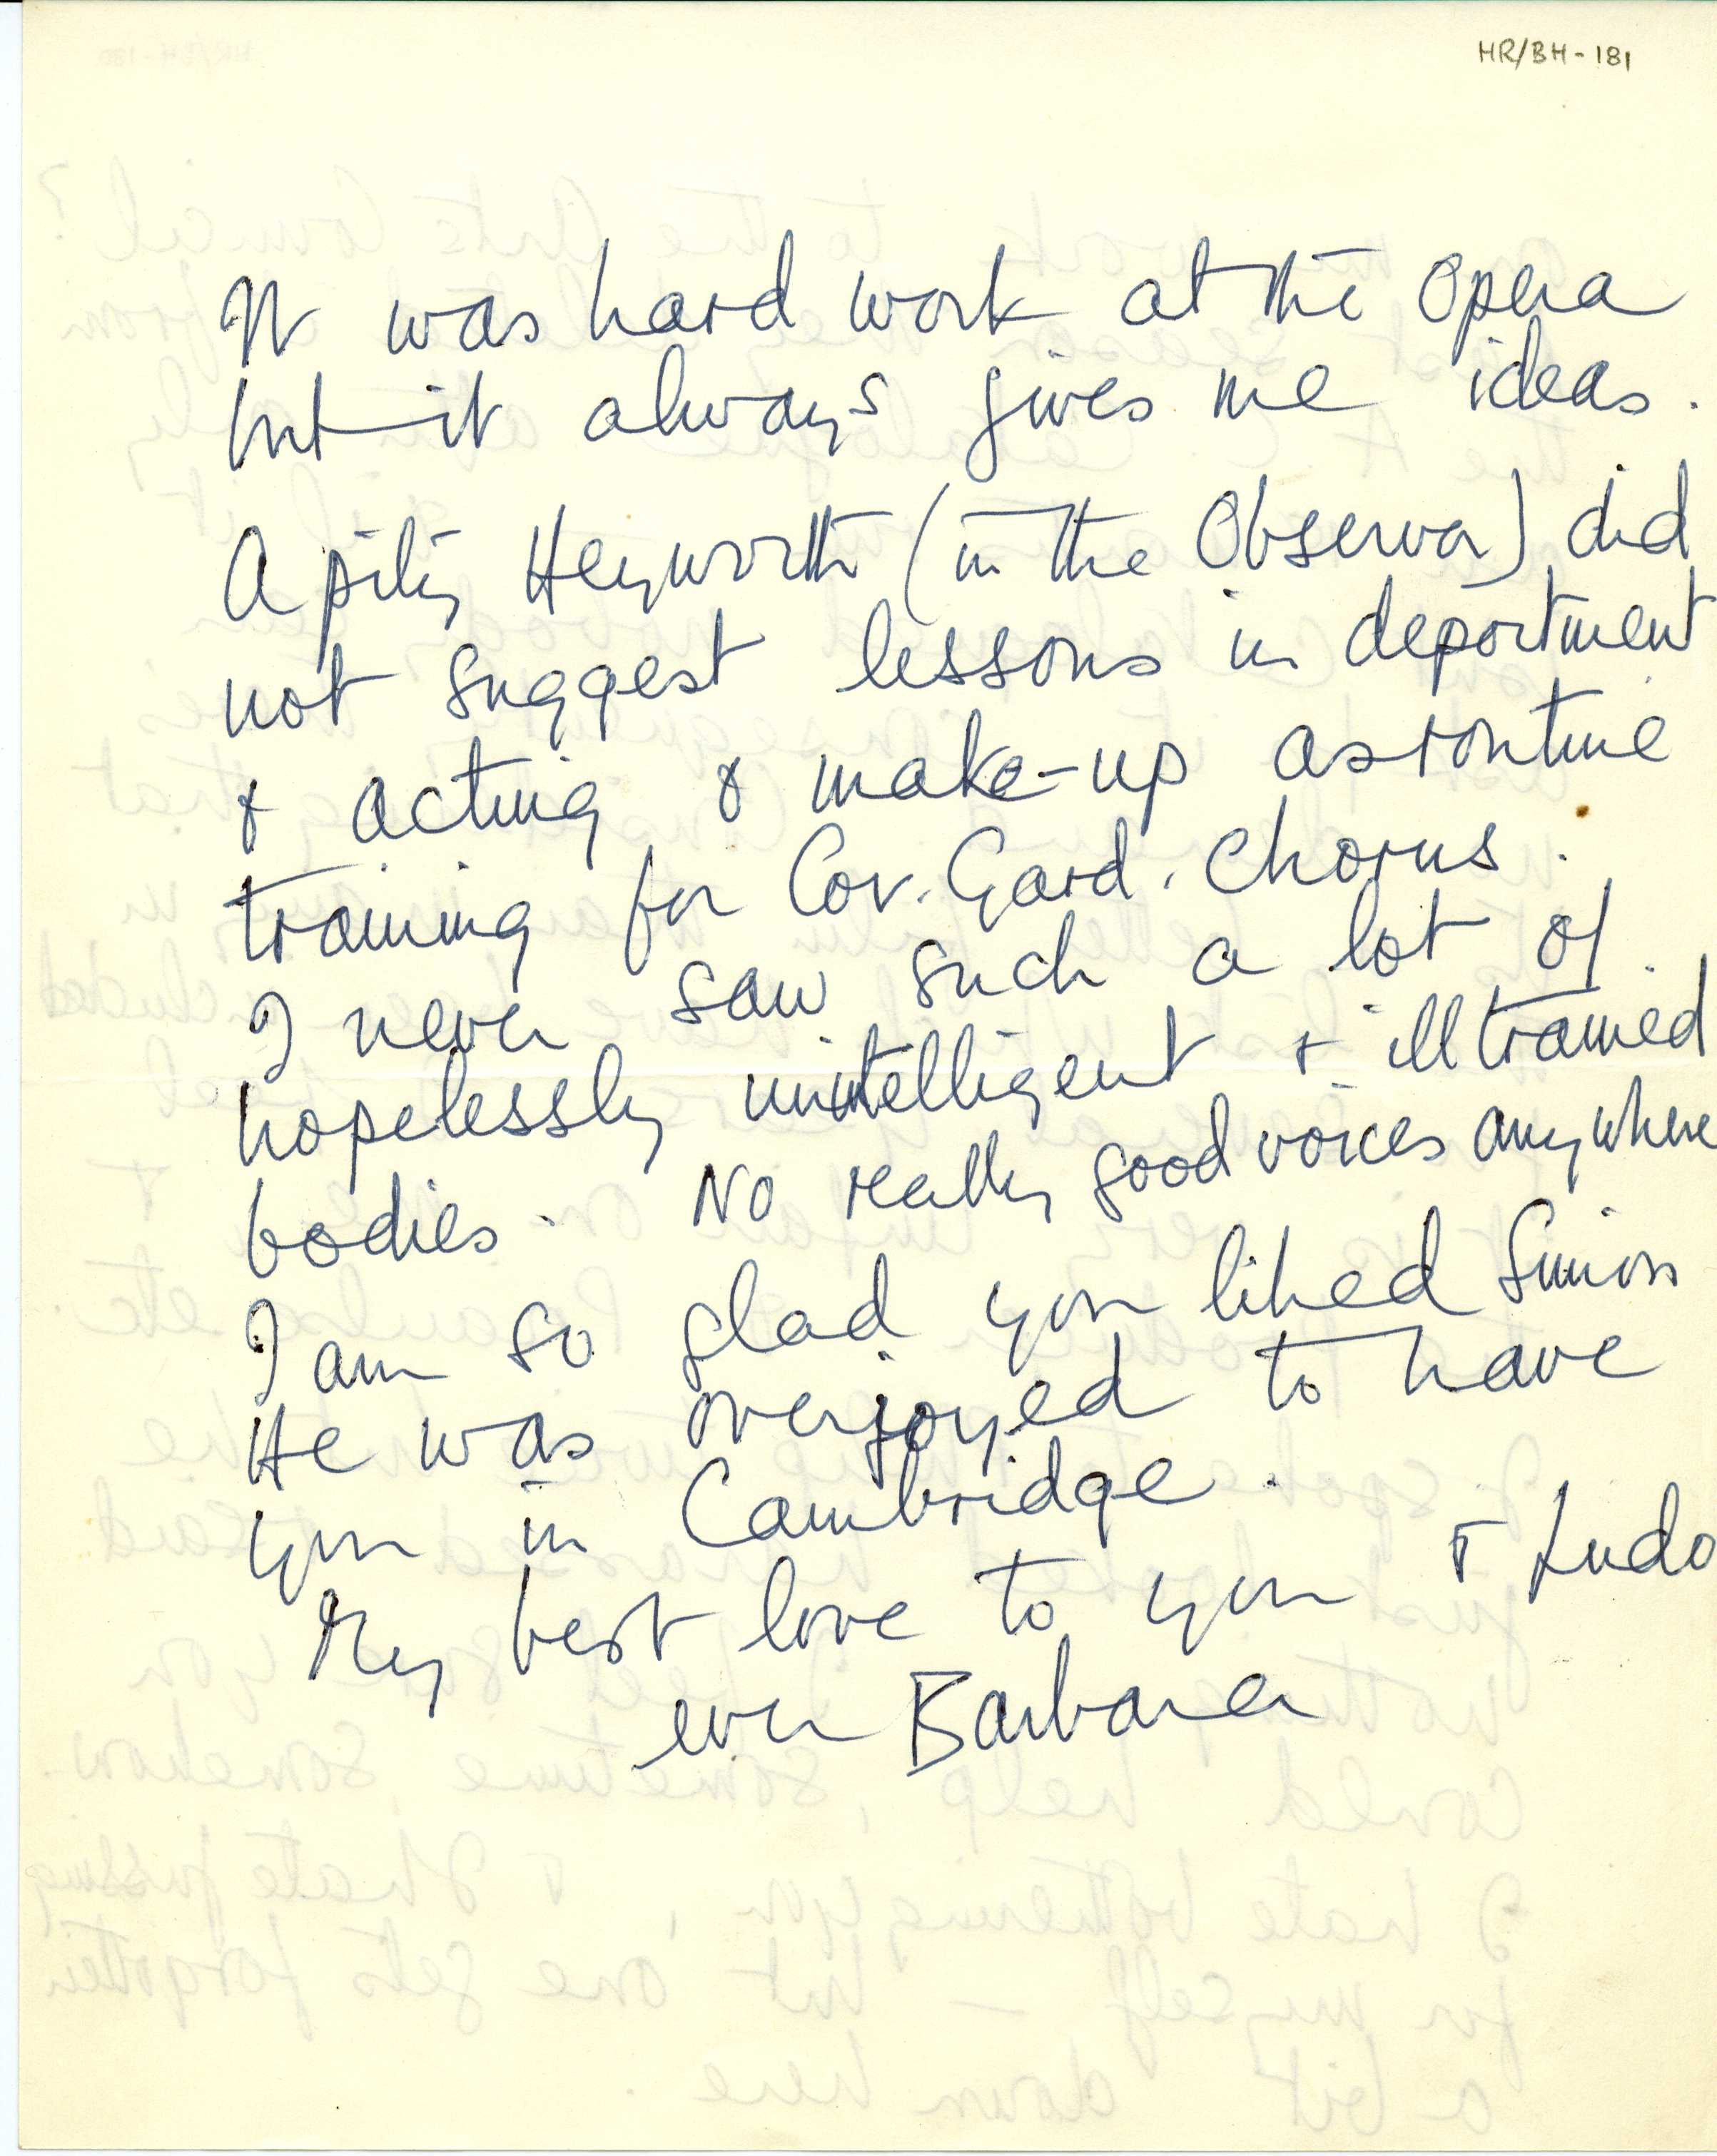 HR/BH-181
It was hard work at the Opera
but it always gives me ideas.
A pity Heyworth (in the Observer) did
not suggest lessons in deportment
& acting & make-up as routine
training for Cov. Gard. Chorus.
I never saw such a lot of
hopelessly unintelligent & ill trained
bodies. No really good voices anywhere
I am so glad you liked Simon
He was overjoyed to have
you in Cambridge.
My best love to you & Ludo
ever Barbara